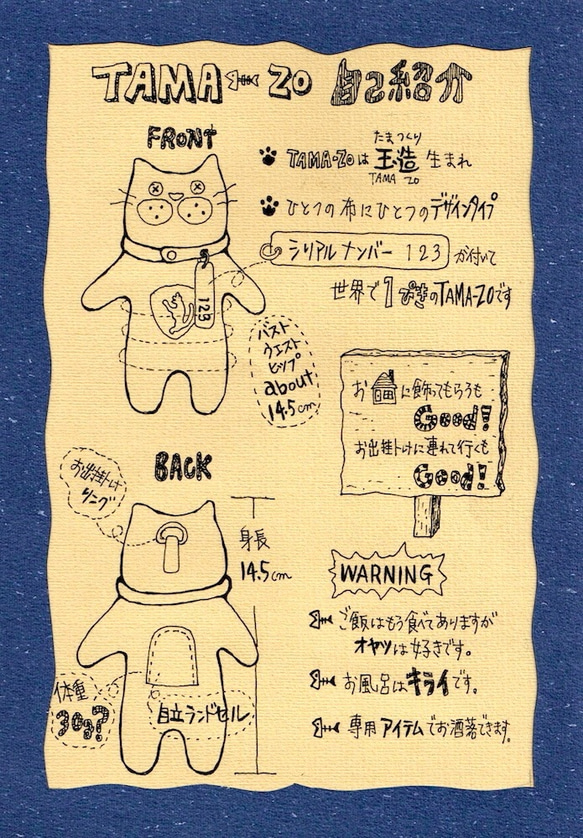 TAMA ZO 自己紹介
FRONT
たまつくり
TAMA-ZOは 玉造 生まれ
TAMA ZO
ひとつの布にひとつのデザインタイプ
シリアルナンバー 123 が付いて
世界で1ぴきのTAMA-ZOです
123
バスト
ウエスト
ヒップ
about
14.5cm
お に飾ってもらうも
Good!
お出掛けに連れて行くも
Good!
BACK
お出掛け
リング
身長
14.5cm
WARNING
ご飯はもう食べてありますが
オヤツは好きです。
お風呂はキライです。
体重
30g?
自立ランドセル
専用アイテムでお洒落できます。